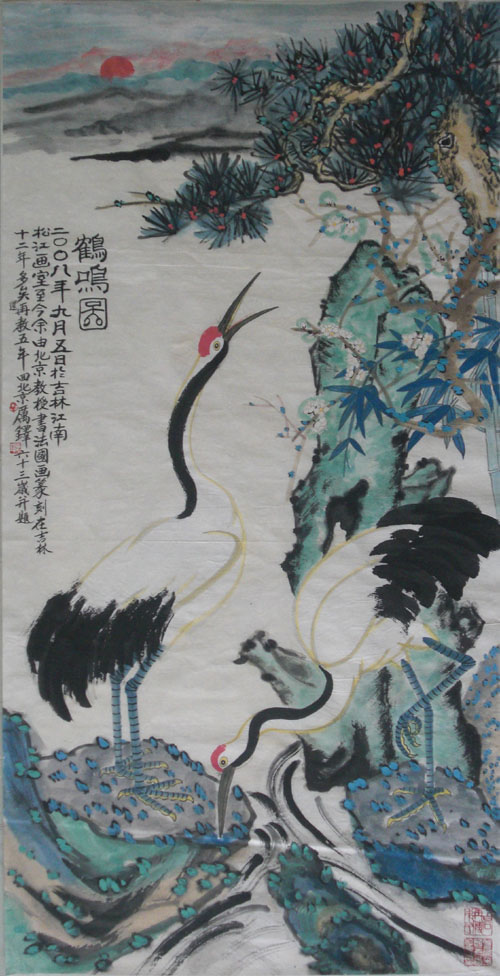 鶴鳴图
二〇〇八年九月五日於吉林江南
松江画室至今余由北京教授書法國画篆刻在吉林
十二年多矣再教五年回北京厲鐸六十三歲并題